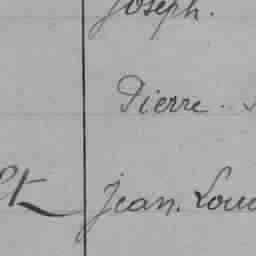 Joseph.
Pierre.
Jean. Lou